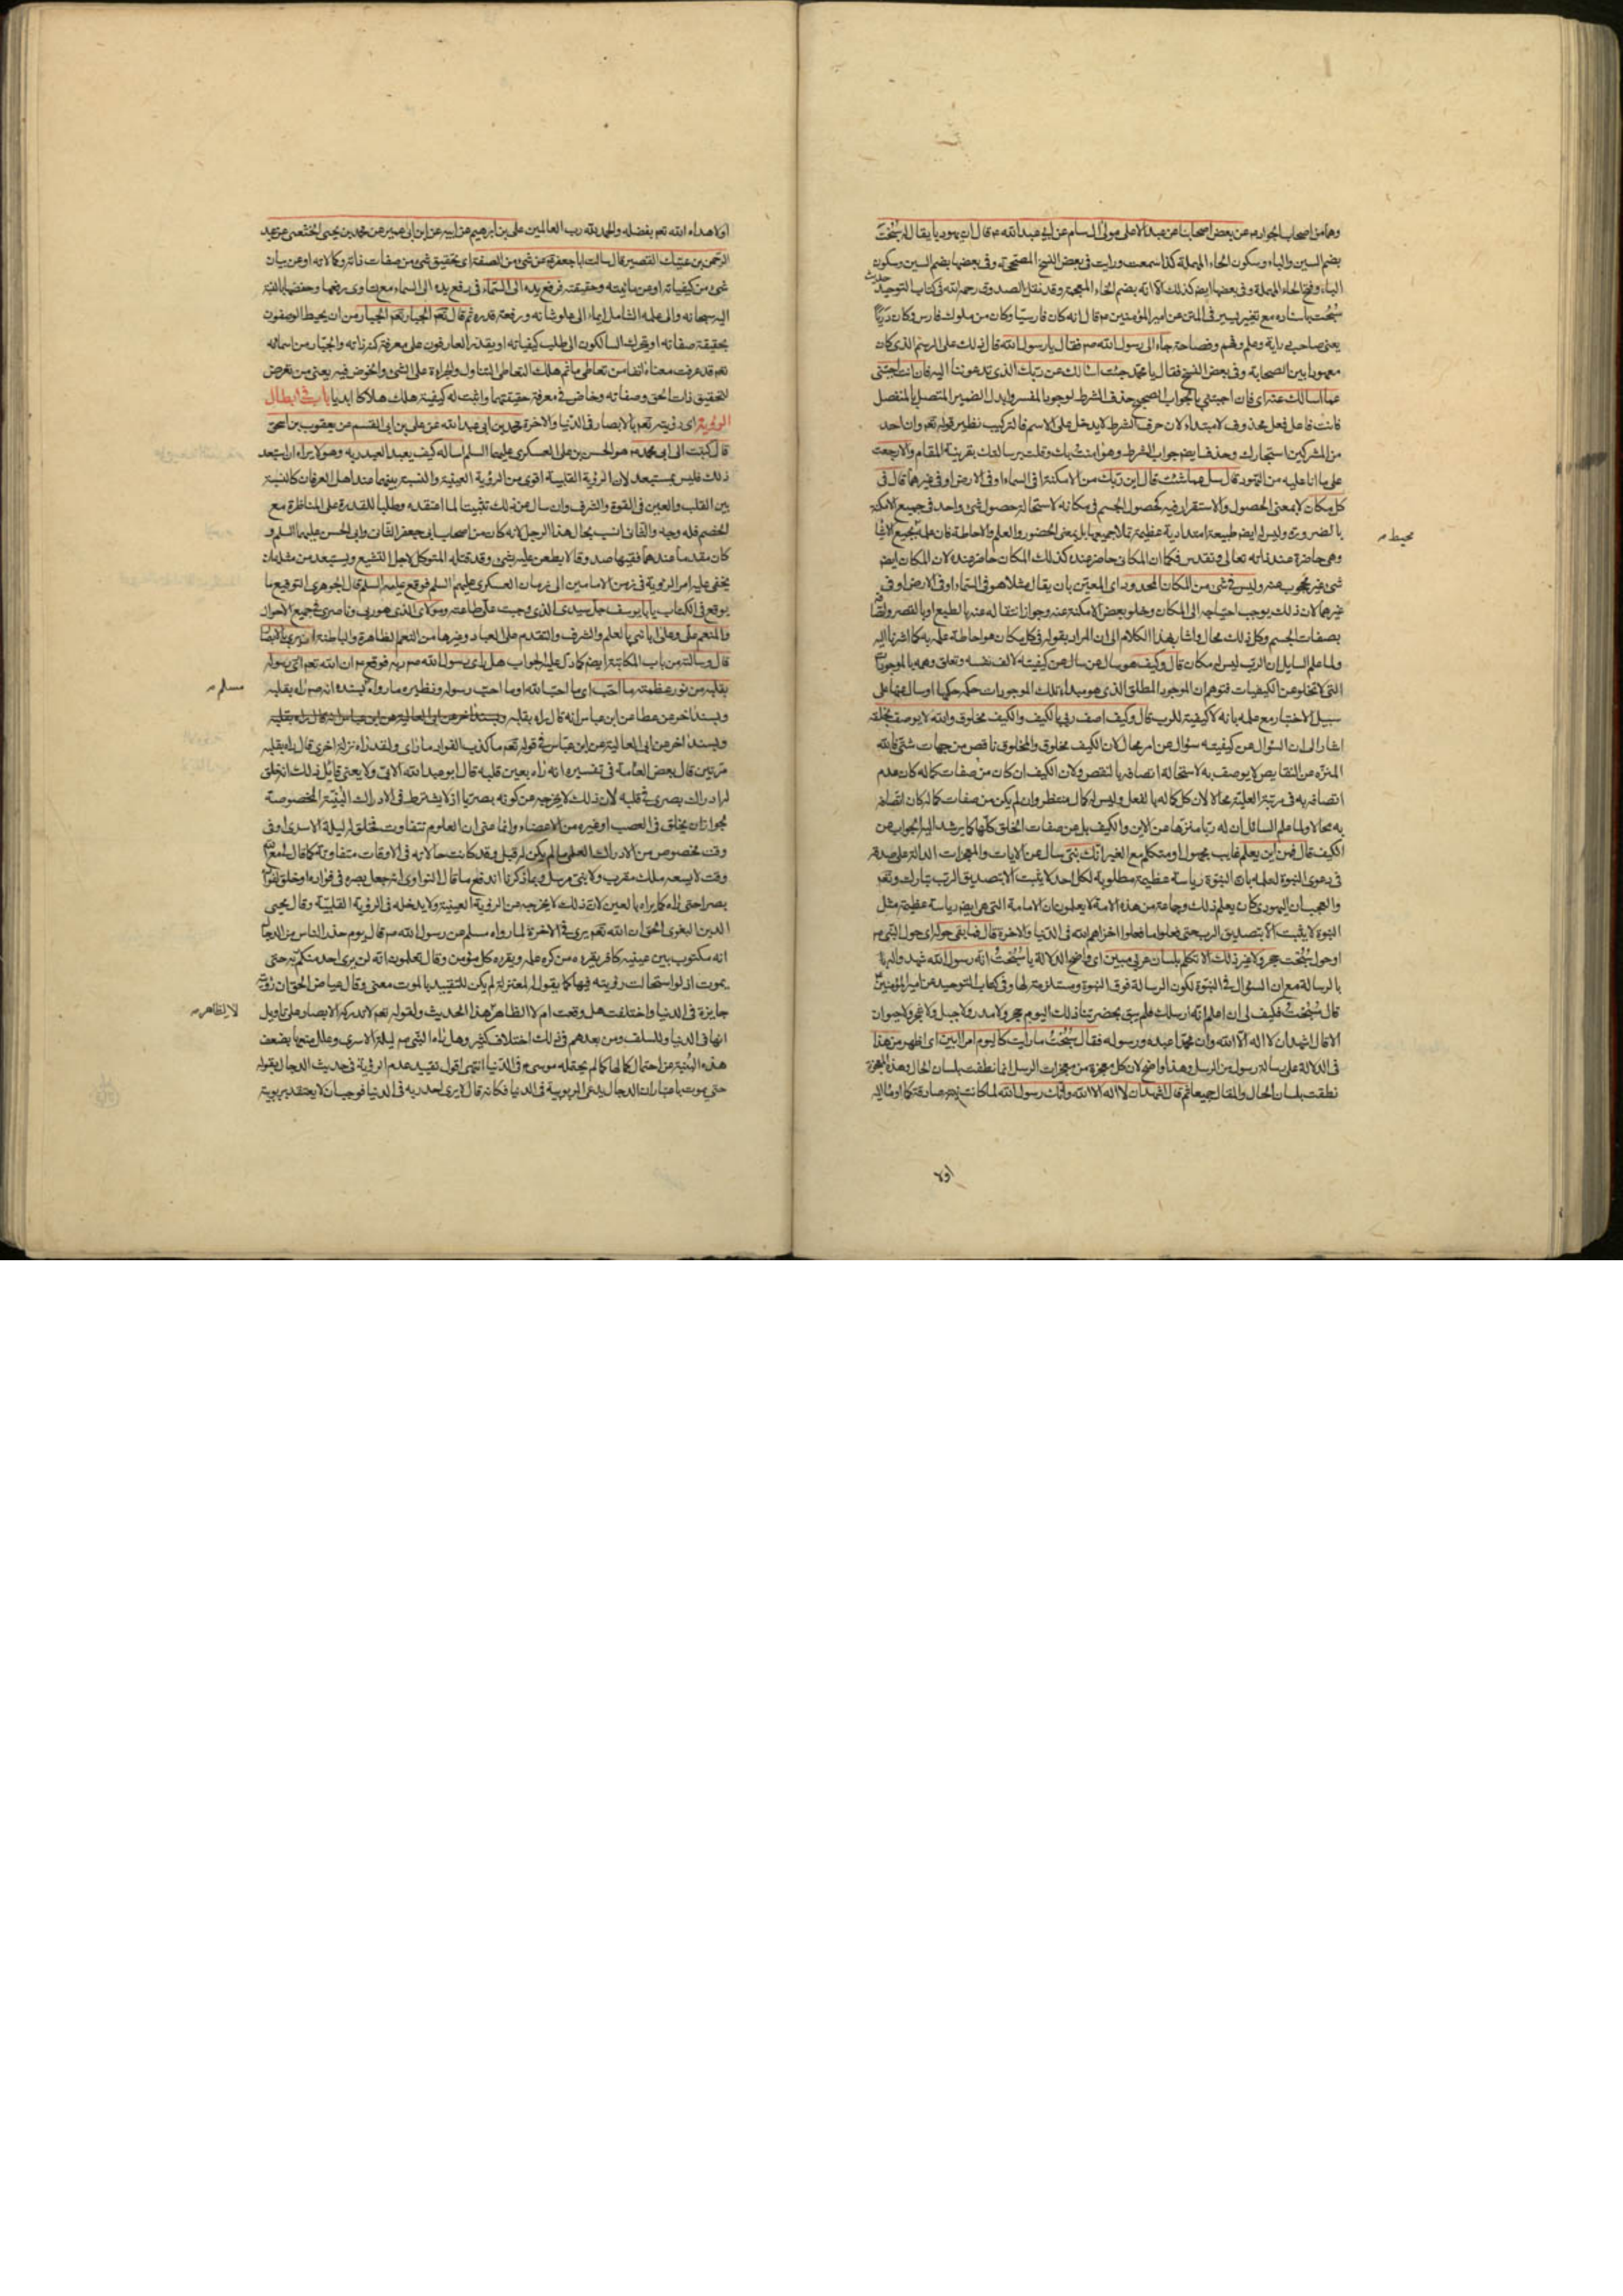 وهما من اصحاب الجواد ع عن بعض اصحابنا عن عبد الاعلى مولى ال سام عن ابي عبد الله ع قال ان يهوديا يقال له سُبُخت
بضم السين والباء وسكون الحاء المهملة كذا سمعت ورايت في بعض النسخ المصححة وفي بعضها بضم السين وسكون
الباء وفتح الحاء المهملة وفي بعضها ايضا كذلك الا انه بضم الخاء المعجمة وقد نقل الصدوق رحمه الله في كتاب التوحيد حديث
سبخت باسناده مع تغيير يسير في المتن عن امير المؤمنين ع قال انه كان فارسيا وكان من ملوك فارس وكان ذربا
يعني صاحب دراية وعلم وفهم وفصاحة جاء الى رسول الله صم فقال يا رسول الله قال ذلك على الرسم الذي كان
معهودا بين الصحابة وفي بعض النسخ فقال يا محمد جئت اسالك عن ربك الذي تدعوننا اليه فان انت اجبتني
عما اسالك عنه اي فان اجبتني بالجواب الصحيح حذف الشرط لوجوب المفسر وابدل الضمير المتصل بالمنفصل
فانت فاعل فعل محذوف لا مبتداء لان حرف الشرط لا يدخل على الاسم فالتركيب نظير قوله تعم وان احد
من المشركين استجارك وحذف ايضم جواب الشرط وهو امنت بك وقلت برسالتك بقرينة المقام والا رجعت
على ما انا عليه من التهود قال سل عما شئت قال اين ربك من الامكنة افي السماء او في الارض او في غيرهما قال في
كل مكان لا بمعنى الحصول والاستقرار فيه كحصول الجسم في مكانه لاستحالة حصول شئ واحد في جميع الامكنة
بالضرورة وليس له ايضم طبيعة امتدادية عظيمة تملا جميعها بل بمعنى الحضور والعلم والاحاطة فان علمه بجميع الاشيا
محيط
وهي حاضرة عند ذاته تعالى وتقدس فكما ان المكاني حاضر عنده كذلك المكان حاضر عنده لان المكان ايضم
شئ غير محجوب عنه وليس في شئ من المكان المحدود اي المعين بان يقال مثلا هو في السماء او في الارض او في
غيرهما لان ذلك يوجب احتياجه الى المكان وخلو بعض الامكنة عنه وجواز انتقاله عنه بالطبع او بالقسر واتصافه
بصفات الجسم وكل ذلك محال واشار بهذا الكلام الى ان المراد بقوله في كل مكان هو احاطة علمه به كما اشرنا اليه
ولما علم السايل ان الرب ليس له مكان قال وكيف هو سال عن كيفيته لالف نفسه وتعلق وهمه بالموجودات
التي لا تخلو عن الكيفيات فتوهم ان الموجود المطلق الذي هو مبداء تلك الموجودات حكمه حكمها او سال عنها على
سبيل الاختبار مع علمه بانه لا كيفية للرب قال وكيف اصف ربي بالكيف والكيف مخلوق والله لا يوصف بخلقه
اشار الى ان السؤال عن كيفيته سؤال عن امر محال لان الكيف مخلوق والمخلوق ناقص من جهات شتى فالله
المنزه عن النقايص لا يوصف به لاستحالة اتصافه بالنقص ولان الكيف ان كان من صفات كماله كان عدم
اتصافه به في مرتبته العلية محالا لان كل كماله بالفعل وليس له كمال منتظر وان لم يكن من صفات كماله كان اتصافه
به محالا ولما علم السائل ان له ربا منزها عن الاين والكيف بل عن صفات الخلق كلها كما يرشد اليه الجواب عن
الكيف قال فمن اين يعلم غايب مجهول او متكلم مع الغير انك نبي سال عن الايات والمعجزات الدالة على صدقه
في دعوى النبوة لعلمه بان النبوة رياسة عظيمة مطلوبة لكل احد لا يثبت الا بتصديق الرب تبارك وتعم
والعجب ان اليهودي كان يعلم ذلك وجماعة من هذه الامة لا يعلمون ان الامامة التي هي ايضم رياسة عظيمة مثل
النبوة لا يثبت الا بتصديق الرب حتى فعلوا ما فعلوا اخزاهم الله في الدنيا والاخرة قال فما بقي حوله اي حول النبي صم
او حول سبخت حجر ولا غير ذلك الا تكلم بلسان عربي مبين اي واضح الدلالة يا سبخت انه رسول الله شهد واله
بالرسالة مع ان السؤال في النبوة لكون الرسالة فوق النبوة ومستلزمة لها وفي كتاب التوحيد عن امير المؤمنين
قال سبخت فكيف لي ان اعلم انه ارسلك فلم يبق بحضرتنا ذلك اليوم حجر ولا مدر ولا جبل ولا شجر ولا حيوان
الا قال اشهد ان لا اله الا الله وان محمدا عبده ورسوله فقال سبخت ما رايت كاليوم امرا ابين اي اظهر من هذا
في الدلالة على رسالة رسول من الرسل وهذا واضح لان كل معجزة من معجزات الرسل انما نطقت بلسان الحال وهذه المعجزة
نطقت بلسان الحال والمقال جميعا ثم قال اشهد ان لا اله الا الله وانك رسول الله لما كانت نيته صادقة كما اوما اليه
اولا
اولا هداه الله تعم بفضله والحمد لله رب العالمين علي بن ابرهيم عن ابيه عن ابن ابي عمير عن محمد بن يحيى الخثعمي عن عبد
الرحمن بن عتيك القصير قال سالت ابا جعفر ع عن شئ من الصفة اي تحقيق شئ من صفات ذاته وكمالاته او عن بيان
شئ من كيفياته او من مائيته وحقيقته فرفع يده الى السماء في رفع يده الى السماء مع تساوي رفعها وخفضها بالنسبة
اليه سبحانه والى علمه الشامل ايماء الى علو شانه ورفعة قدره ثم قال تعم الجبار تعم الجبار من ان يحيط الواصفون
بحقيقة صفاته او يتحرك السالكون الى طلب كيفياته او يقدر العارفون على معرفة كنه ذاته والجبار من اسمائه
تعم قد عرفت معناه انفا من تعاطى ما ثم هلك التعاطي التناول والجراءة على الشئ والخوض فيه يعني من تعرض
لتحقيق ذات الحق وصفاته وخاض في معرفة حقيقتهما واثبت له كيفية هلك هلاكا ابديا باب في ابطال
الرؤية اي رؤيته تعم بالابصار في الدنيا والاخرة محمد بن ابي عبد الله عن علي بن ابي القسم عن يعقوب بن اسحق
قال كتبت الى ابي محمد ع هو الحسن بن علي العسكري عليهما السلم اساله كيف يعبد العبد ربه وهو لا يراه ان استبعد
ذلك فليس بمستبعد لان الرؤية القلبية اقوى من الرؤية العينية والنسبة بينهما عند اهل العرفان كالنسبة
بين القلب والعين في القوة والشرف وان سال عن ذلك تثبيتا لما اعتقده وطلبا للقدرة على المناظرة مع
الخصم فله وجه والثاني انسب بحال هذا الرجل لانه كان من اصحاب ابي جعفر الثاني وابي الحسن عليهما السلم و
كان مقدما عندهما فقيها صدوقا لا يطعن عليه بشئ وقد قتله المتوكل لاجل التشيع ويستبعد من مثله ان
يخفى عليه امر الرؤية في زمن الامامين الى زمان العسكري عليهم السلم فوقع عليه السلم قال الجوهري التوقيع ما
يوقع في الكتاب يا با يوسف جل سيدي الذي وجبت علي طاعته ومولاي الذي هو ربي وناصري في جميع الاحوال
والمنعم علي وعلى ابائي بالعلم والشرف والتقدم على العباد وغيرها من النعم الظاهرة والباطنة ان يرى بالعين
قال وسالته من باب المكاتبة ايضم كما دل عليه الجواب هل راى رسول الله صم ربه فوقع ع ان الله تعم ارى رسوله
بقلبه من نور عظمته ما احب اي ما احب الله او ما احب رسوله ونظيره ما رواه مسلم بسنده انه صم راه بقلبه
وبسند اخر عن عطا عن ابن عباس انه قال راه بقلبه وبسند اخر عن ابي العالية عن ابن عباس انه قال راه بقلبه
وبسند اخر عن ابي العالية عن ابن عباس في قوله تعم ما كذب الفؤاد ما راى ولقد راه نزلة اخرى قال راه بقلبه
مرتين قال بعض العامة في تفسيره انه راه بعين قلبه قال ابو عبد الله الابي ولا يعني قايل ذلك انه خلق
له ادراك بصري في قلبه لان ذلك لا يخرجه عن كونه بصريا اذ لا يشترط في الادراك البنية المخصوصة
بجواز ان يخلق في العصب او غيره من الاعضاء وانما عنى ان العلوم تتفاوت فخلق له ليلة الاسرى او في
وقت مخصوص من الادراك العلمي ما لم يكن له قبل وقد كانت حالاته في الاوقات متفاوتة كما قال لي مع الله
وقت لا يسعه ملك مقرب ولا نبي مرسل وبما ذكرنا اندفع ما قال النواوي انه جعل بصره في فؤاده او خلق لفؤاده
بصرا حتى راه كما يراه بالعين لان ذلك لا يخرجه عن الرؤية العينية ولا يدخله في الرؤية القلبية وقال محيى
الدين البغوي الحق ان الله تعم يرى في الاخرة لما رواه مسلم عن رسول الله صم قال يوم حذر الناس من الدجال
انه مكتوب بين عينيه كافر يقرءه من كره عمله ويقرءه كل مؤمن وقال تعلموا انه لن يرى احد منكم ربه حتى
يموت اذ لو استحالت رؤيته فيها كما يقوله المعتزلة لم يكن للتقييد بالموت معنى وقال عياض الحق ان رؤيته
جايزة في الدنيا واختلفت هل وقعت ام لا لظاهر هذا الحديث ولقوله تعم لا تدركه الابصار وعلى تاويل
لا لظاهر
انها في الدنيا وللسلف ومن بعدهم في ذلك اختلاف كثير وهل راه النبي صم ليلة الاسرى وعلل منعها بضعف
هذه البنية عن احتمالها كما لم يحتمله موسى ع في الدنيا انتهى اقول تقييد عدم الرؤية في حديث الدجال بقوله
حتى يموت باعتبار ان الدجال يدعي الربوبية في الدنيا فكانه قال لا يرى احد ربه في الدنيا فوجب ان لا يعتقد بربوبية